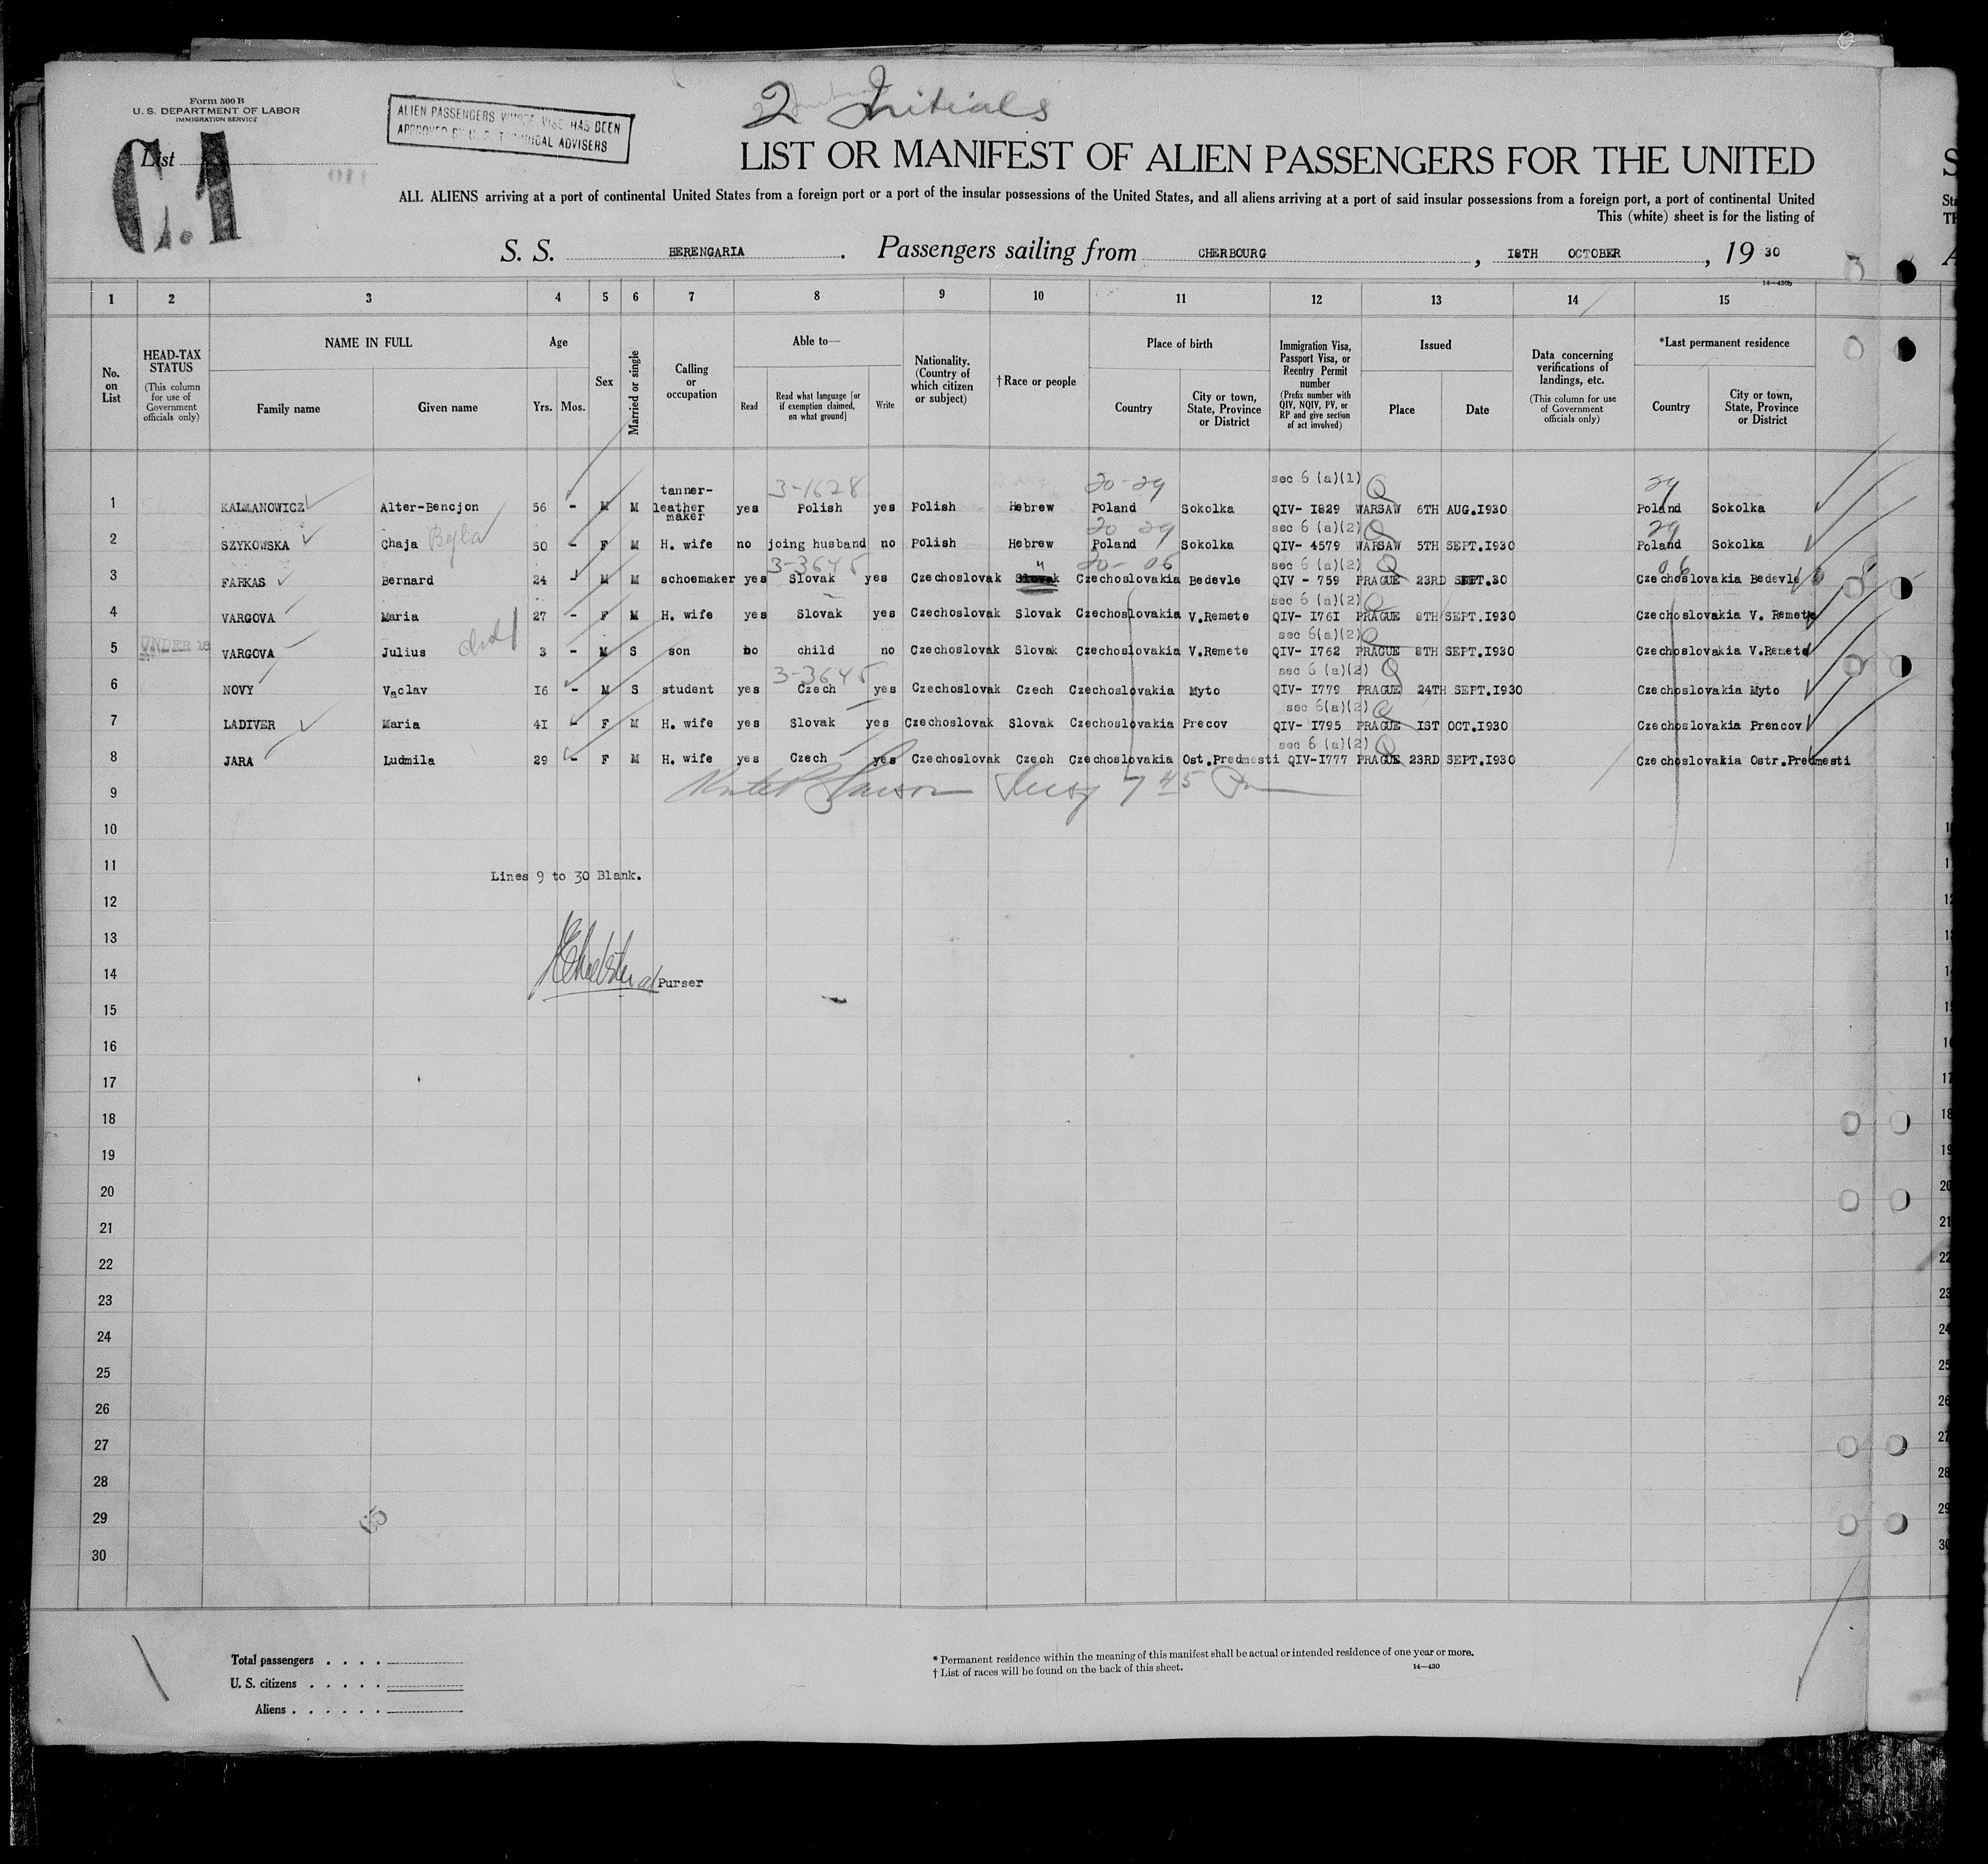 Form 500 B
U. S. DEPARTMENT OF LABOR
IMMIGRATION SERVICE
List
C.1
ALIEN PASSENGERS WHOSE VISE HAS BEEN
APPROVED BY U. S. TECHNICAL ADVISERS
2 Initials
LIST OR MANIFEST OF ALIEN PASSENGERS FOR THE UNITED
ALL ALIENS arriving at a port of continental United States from a foreign port or a port of the insular possessions of the United States, and all aliens arriving at a port of said insular possessions from a foreign port, a port of continental United
This (white) sheet is for the listing of
S. S. BERENGARIA. Passengers sailing from CHERBOURG, I8TH OCTOBER, 19 30
14—430b
1 2 3 4 5 6 7 8 9 10 11 12 13 14 15
No. on List
HEAD-TAX STATUS (This column for use of Government officials only)
NAME IN FULL
Family name Given name
Age
Yrs. Mos.
Sex
Married or single
Calling or occupation
Able to—
Read
Read what language [or if exemption claimed, on what ground]
Write
Nationality. (Country of which citizen or subject)
†Race or people
Place of birth
Country
City or town, State, Province or District
Immigration Visa, Passport Visa, or Reentry Permit number (Prefix number with QIV, NQIV, PV, or RP and give section of act involved)
Issued
Place Date
Data concerning verifications of landings, etc. (This column for use of Government officials only)
*Last permanent residence
Country
City or town, State, Province or District
3-1628 20-29 sec 6 (a)(1) Q 29
1 KALMANOWICZ Alter-Bencjon 56 - M M tanner-leather maker yes Polish yes Polish Hebrew Poland Sokolka QIV- I829 WARSAW 6TH AUG.I930 Poland Sokolka
20 29 sec 6 (a)(2) Q 29
2 SZYKOWSKA Chaja Bejla 50 - F M H. wife no joing husband no Polish Hebrew Poland Sokolka QIV- 4579 WARSAW 5TH SEPT.I930 Poland Sokolka
3-3645 " 20-06 sec 6 (a)(2) Q 06
3 FARKAS Bernard 24 - M M schoemaker yes Slovak yes Czechoslovak Slovak Czechoslovakia Bedevle QIV - 759 PRAGUE 23RD SEPT.30 Czechoslovakia Bedevle
sec 6 (a)(2) Q
4 VARGOVA Maria 27 - F M H. wife yes Slovak yes Czechoslovak Slovak Czechoslovakia V.Remete QIV- I76I PRAGUE 8TH SEPT.I930 Czechoslovakia V. Remete
sec 6(a)(2) Q
5 UNDER 16 VARGOVA Julius 3 - M S son no child no Czechoslovak Slovak Czechoslovakia V.Remete QIV- I762 PRAGUE 8TH SEPT.I930 Czechoslovakia V.Remete
3-3645 sec 6 (a)(2) Q
6 NOVY Vaclav I6 - M S student yes Czech yes Czechoslovak Czech Czechoslovakia Myto QIV- I779 PRAGUE 24TH SEPT.I930 Czechoslovakia Myto
sec 6(a)(2) Q
7 LADIVER Maria 4I - F M H. wife yes Slovak yes Czechoslovak Slovak Czechoslovakia Precov QIV- I795 PRAGUE IST OCT.I930 Czechoslovakia Prencov
sec 6 (a)(2) Q
8 JARA Ludmila 29 - F M H. wife yes Czech yes Czechoslovak Czech Czechoslovakia Ost.Predmesti QIV-I777 PRAGUE 23RD SEPT.I930 Czechoslovakia Ostr.Predmesti
9 7 45
10
11 Lines 9 to 30 Blank.
12
13
14 Purser
15
16
17
18
19
20
21
22
23
24
25
26
27
28
29
30
65
Total passengers . . . .
U. S. citizens . . . . .
Aliens . . . . . .
* Permanent residence within the meaning of this manifest shall be actual or intended residence of one year or more.
† List of races will be found on the back of this sheet.
14—430